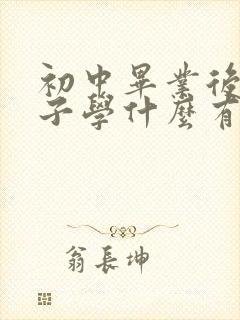 初中畢業後
子學什麼有
翁長坤